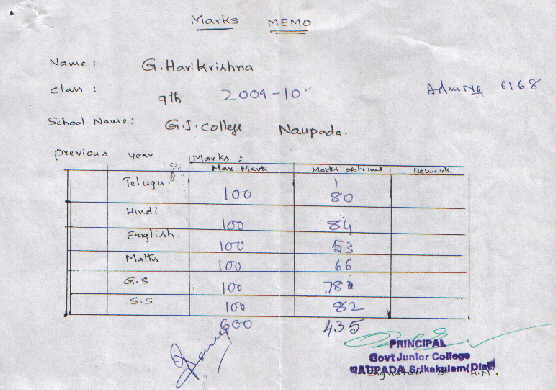 Marks MEMO
Name: G. Hari Krishna
Class: 9th 2009-10
School Name: G.J. College Naupada.
previous year Marks:
Max. Mark Marks
Telugu 100 80
Hindi 100 84
English 100 53
Maths 100 66
G.S 100
S.S 100 82
600 435
PRINCIPAL
Govt Junior College
NAUPADA, Srikakulam (Dist)